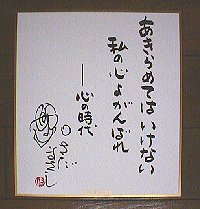 あきらめてはいけない
私の心よがんばれ
―心の時代